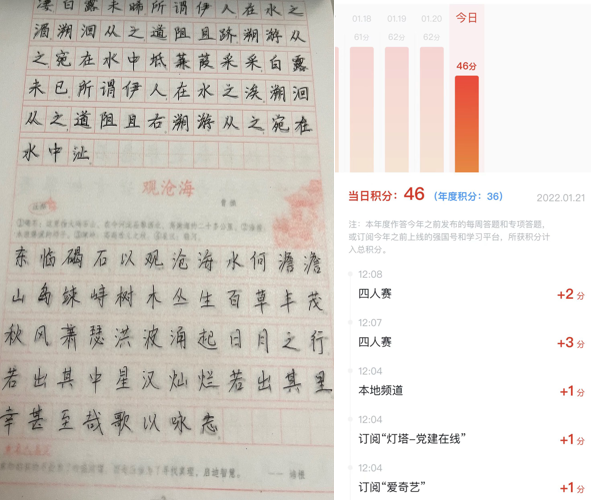 凄白露未晞所谓伊人在水之
湄溯洄从之道阻且跻溯游从
之宛在水中坻蒹葭采采白露
未已所谓伊人在水之涘溯洄
从之道阻且右溯游从之宛在
水中沚
观沧海
曹操
东临碣石以观沧海水何澹澹
山岛竦峙树木丛生百草丰茂
秋风萧瑟洪波涌起日月之行
若出其中星汉灿烂若出其里
幸甚至哉歌以咏志
01.18
01.19
01.20
今日
61分
62分
62分
46分
当日积分：46（年度积分：36）
2022.01.21
注：本年度作答今年之前发布的每周答题和专项答题，
或订阅今年之前上线的强国号和学习平台，所获积分计
入总积分。
12:08
四人赛
+2分
12:07
四人赛
+3分
12:04
本地频道
+1分
12:04
订阅“灯塔-党建在线”
+1分
12:04
订阅“爱奇艺”
+1分